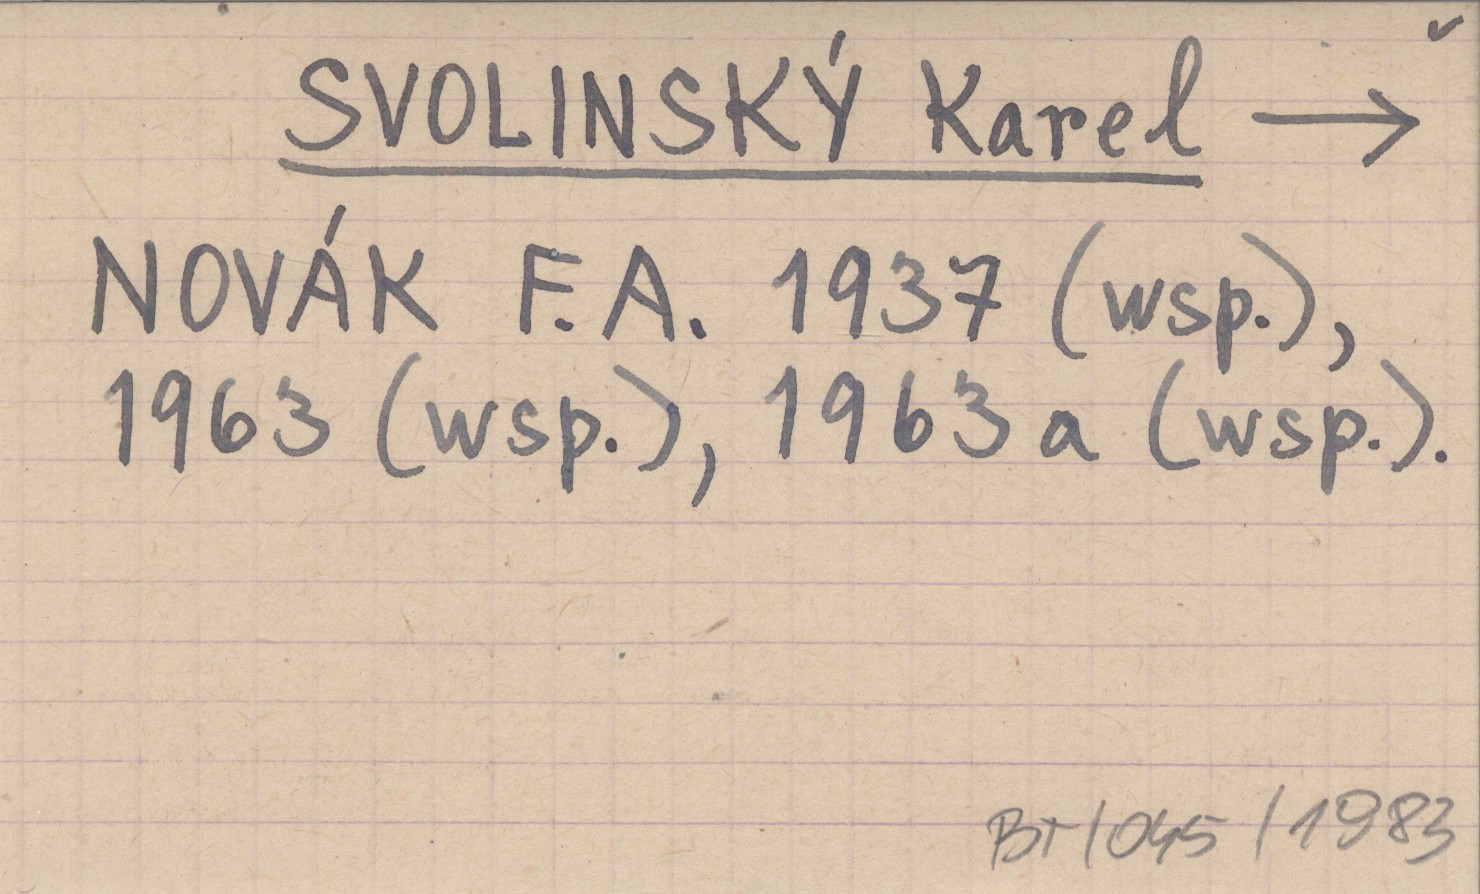 SVOLINSKÝ Karel →
NOVÁK F.A. 1937 (wsp.),
1963 (wsp.), 1963a (wsp.).
BT/045/1983